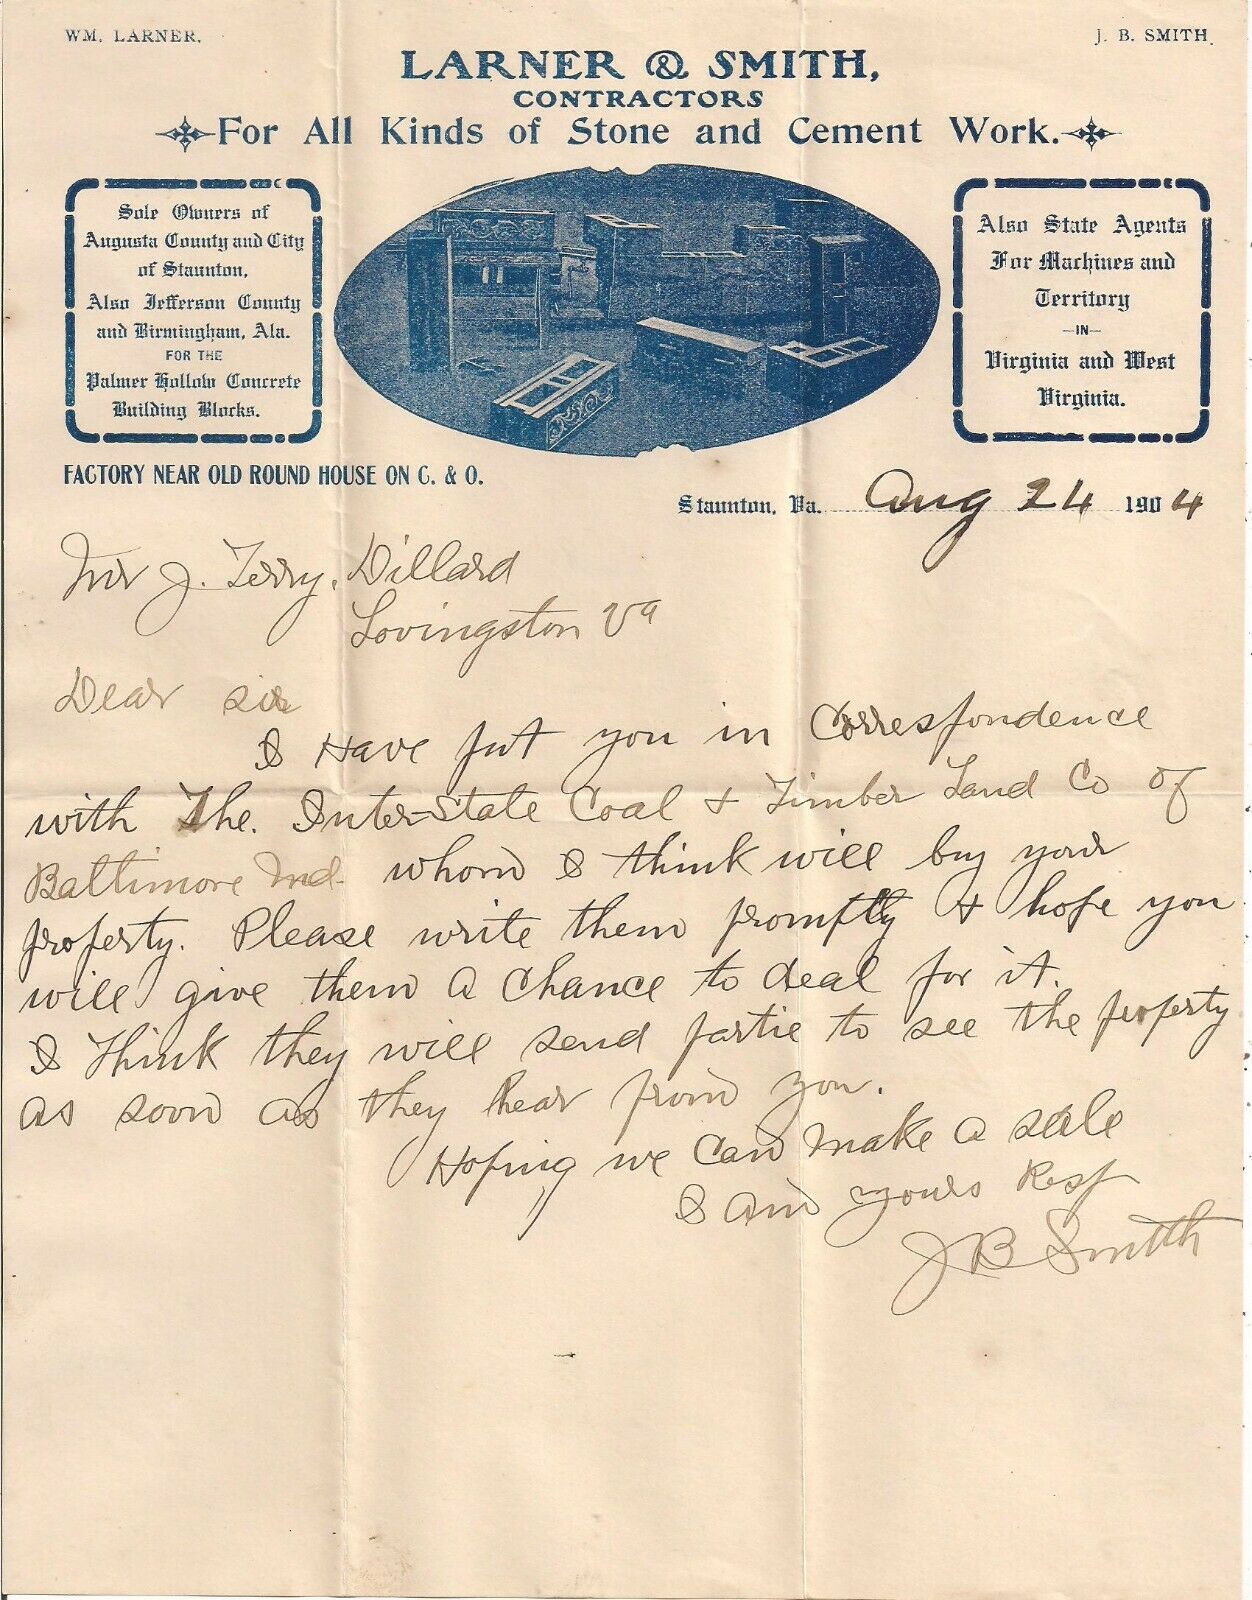 WM. LARNER.
J. B. SMITH.
LARNER & SMITH,
CONTRACTORS
For All Kinds of Stone and Cement Work.
Sole Owners of
Augusta County and City
of Staunton,
Also Jefferson County
and Birmingham, Ala.
FOR THE
Palmer Hollow Concrete
Building Blocks.
Also State Agents
For Machines and
Territory
—IN—
Virginia and West
Virginia.
FACTORY NEAR OLD ROUND HOUSE ON C. & O.
Staunton, Va. Aug 24 1904
Mr J. Terry. Dillard
Lovingston Va
Dear sir
I Have put you in Correspondence
with The. Inter-State Coal & Timber Land Co of
Baltimore Md. whom I think will buy your
property. Please write them promptly & hope you
will give them a Chance to deal for it.
I think they will send partie to see the property
as soon as they hear from you.
Hoping we can make a sale
I am yours Resp
J B Smith